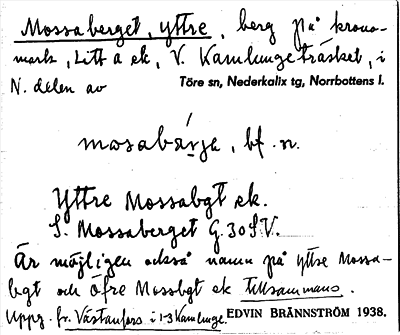 Mossaberget, yttre, berg på krono-
mark, Litt a ek, V. Kamlungeträsket, i
N. delen av Töre sn, Nederkalix tg, Norrbottens l.
mosabárje, bf. n.
Yttre Mossabgt ek.
S. Mossaberget G. 30 S V.
Är möjligen också namn på yttre Mossa-
bgt och Öfre Mossbgt ek tillsammans.
Uppg. fr. Västanfors i 1-3 Kamlunge. EDVIN BRÄNNSTRÖM 1938.